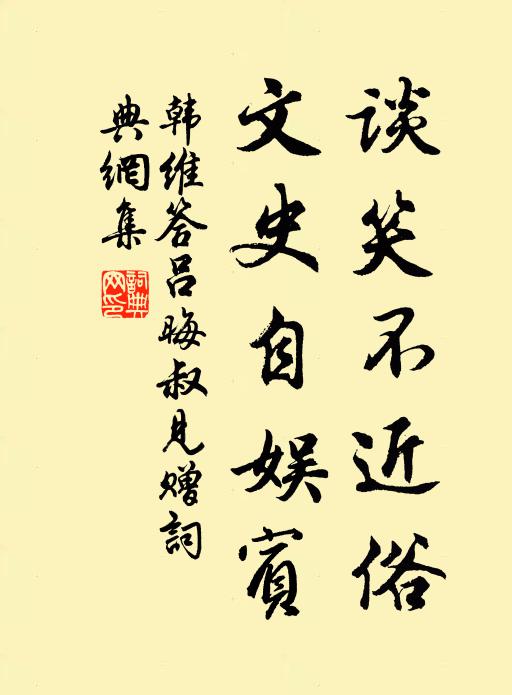 谈笑不近俗
文史自娱賓
韩维答吕晦叔见赠詞
典網集
詞典網印